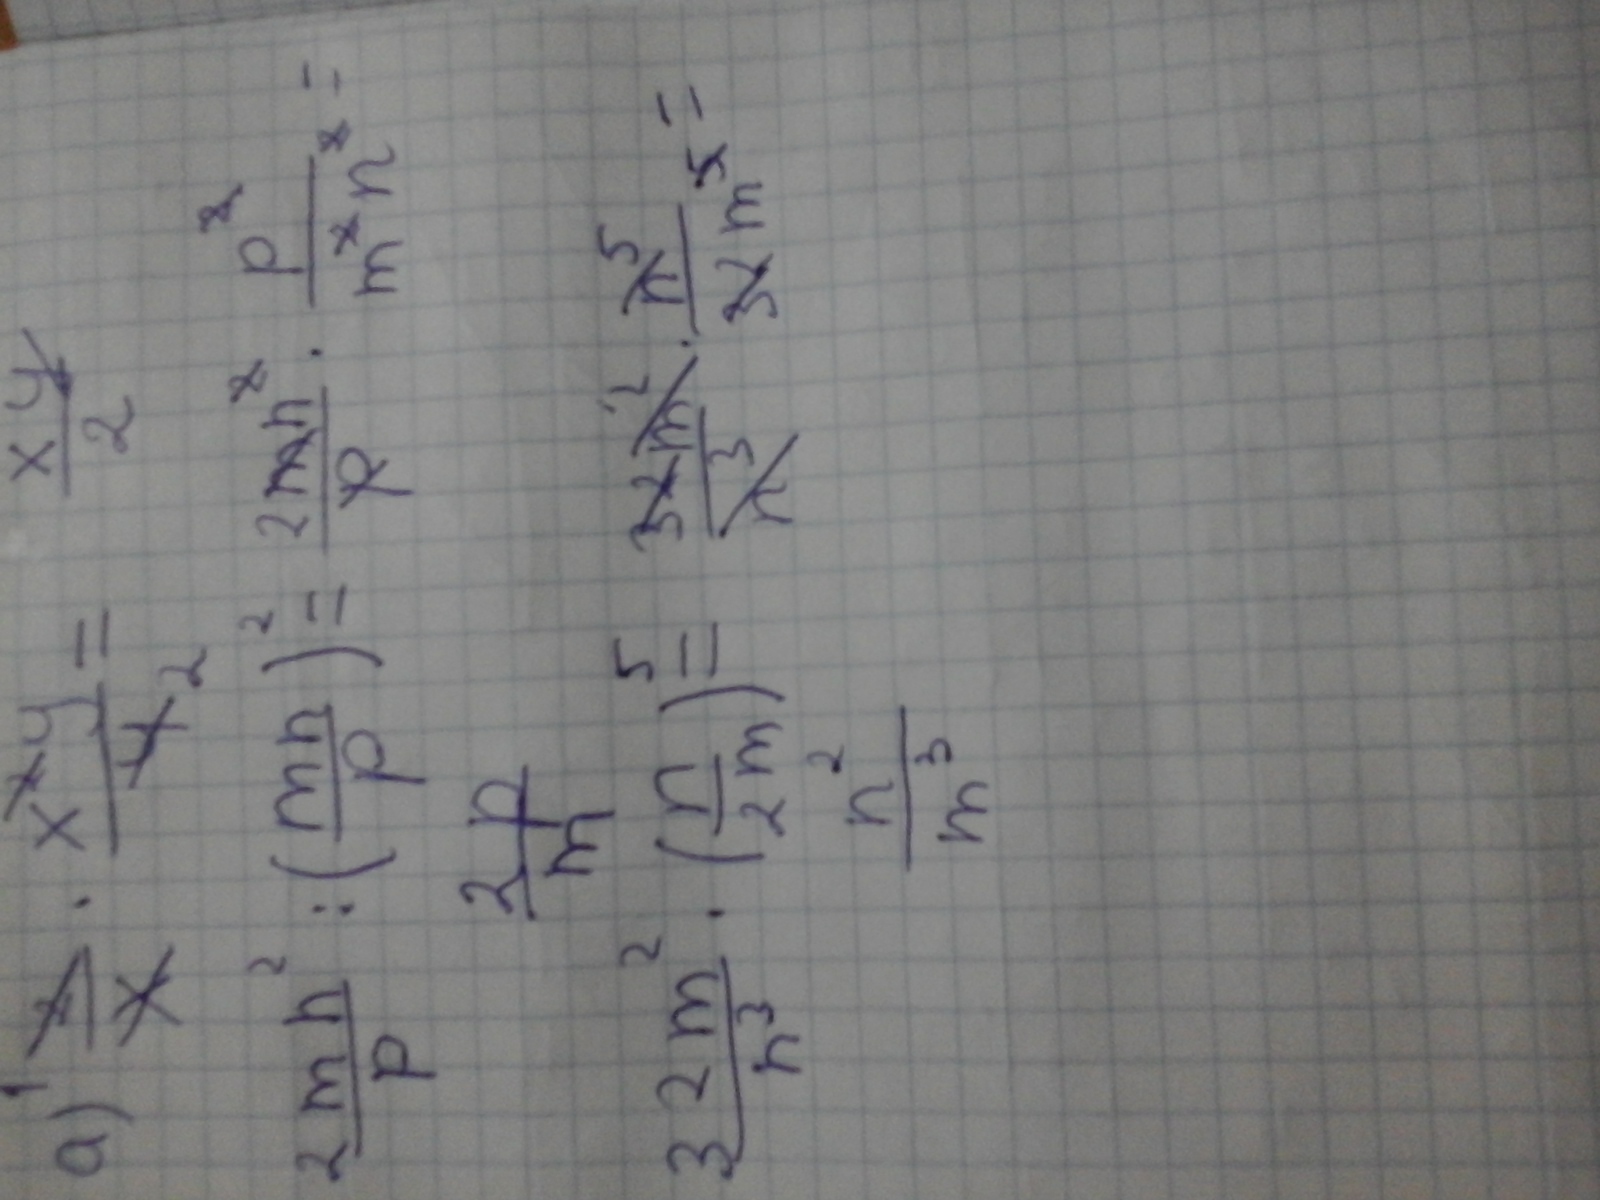 a) 1 2/x · x²y/4 2 = xy/2
2mn²/p : (mn/p)² = 2mn²/p · p²/m²n² =
2p/m
32m²/n³ · (n/2m)⁵ = 32m²/n³ · n⁵/32m⁵ =
n²/m³